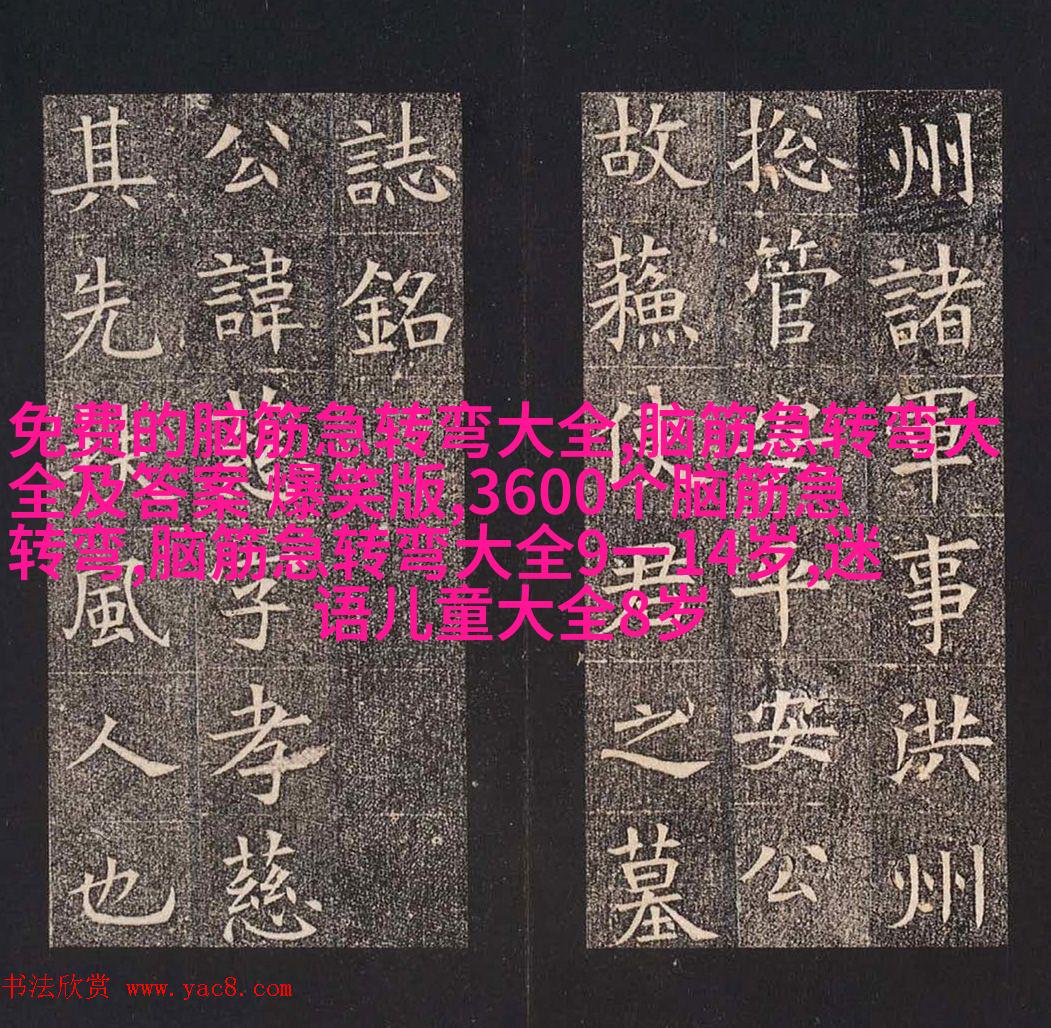 州諸軍事洪州
揔管安平安公
故蘓使君之墓
誌銘
公諱慈字孝慈
其先風人也
免费的脑筋急转弯大全,脑筋急转弯大
全及答案 爆笑版,3600个脑筋急
转弯,脑筋急转弯大全9一14岁,迷
语儿童大全8岁
书法欣赏 www.yac8.com